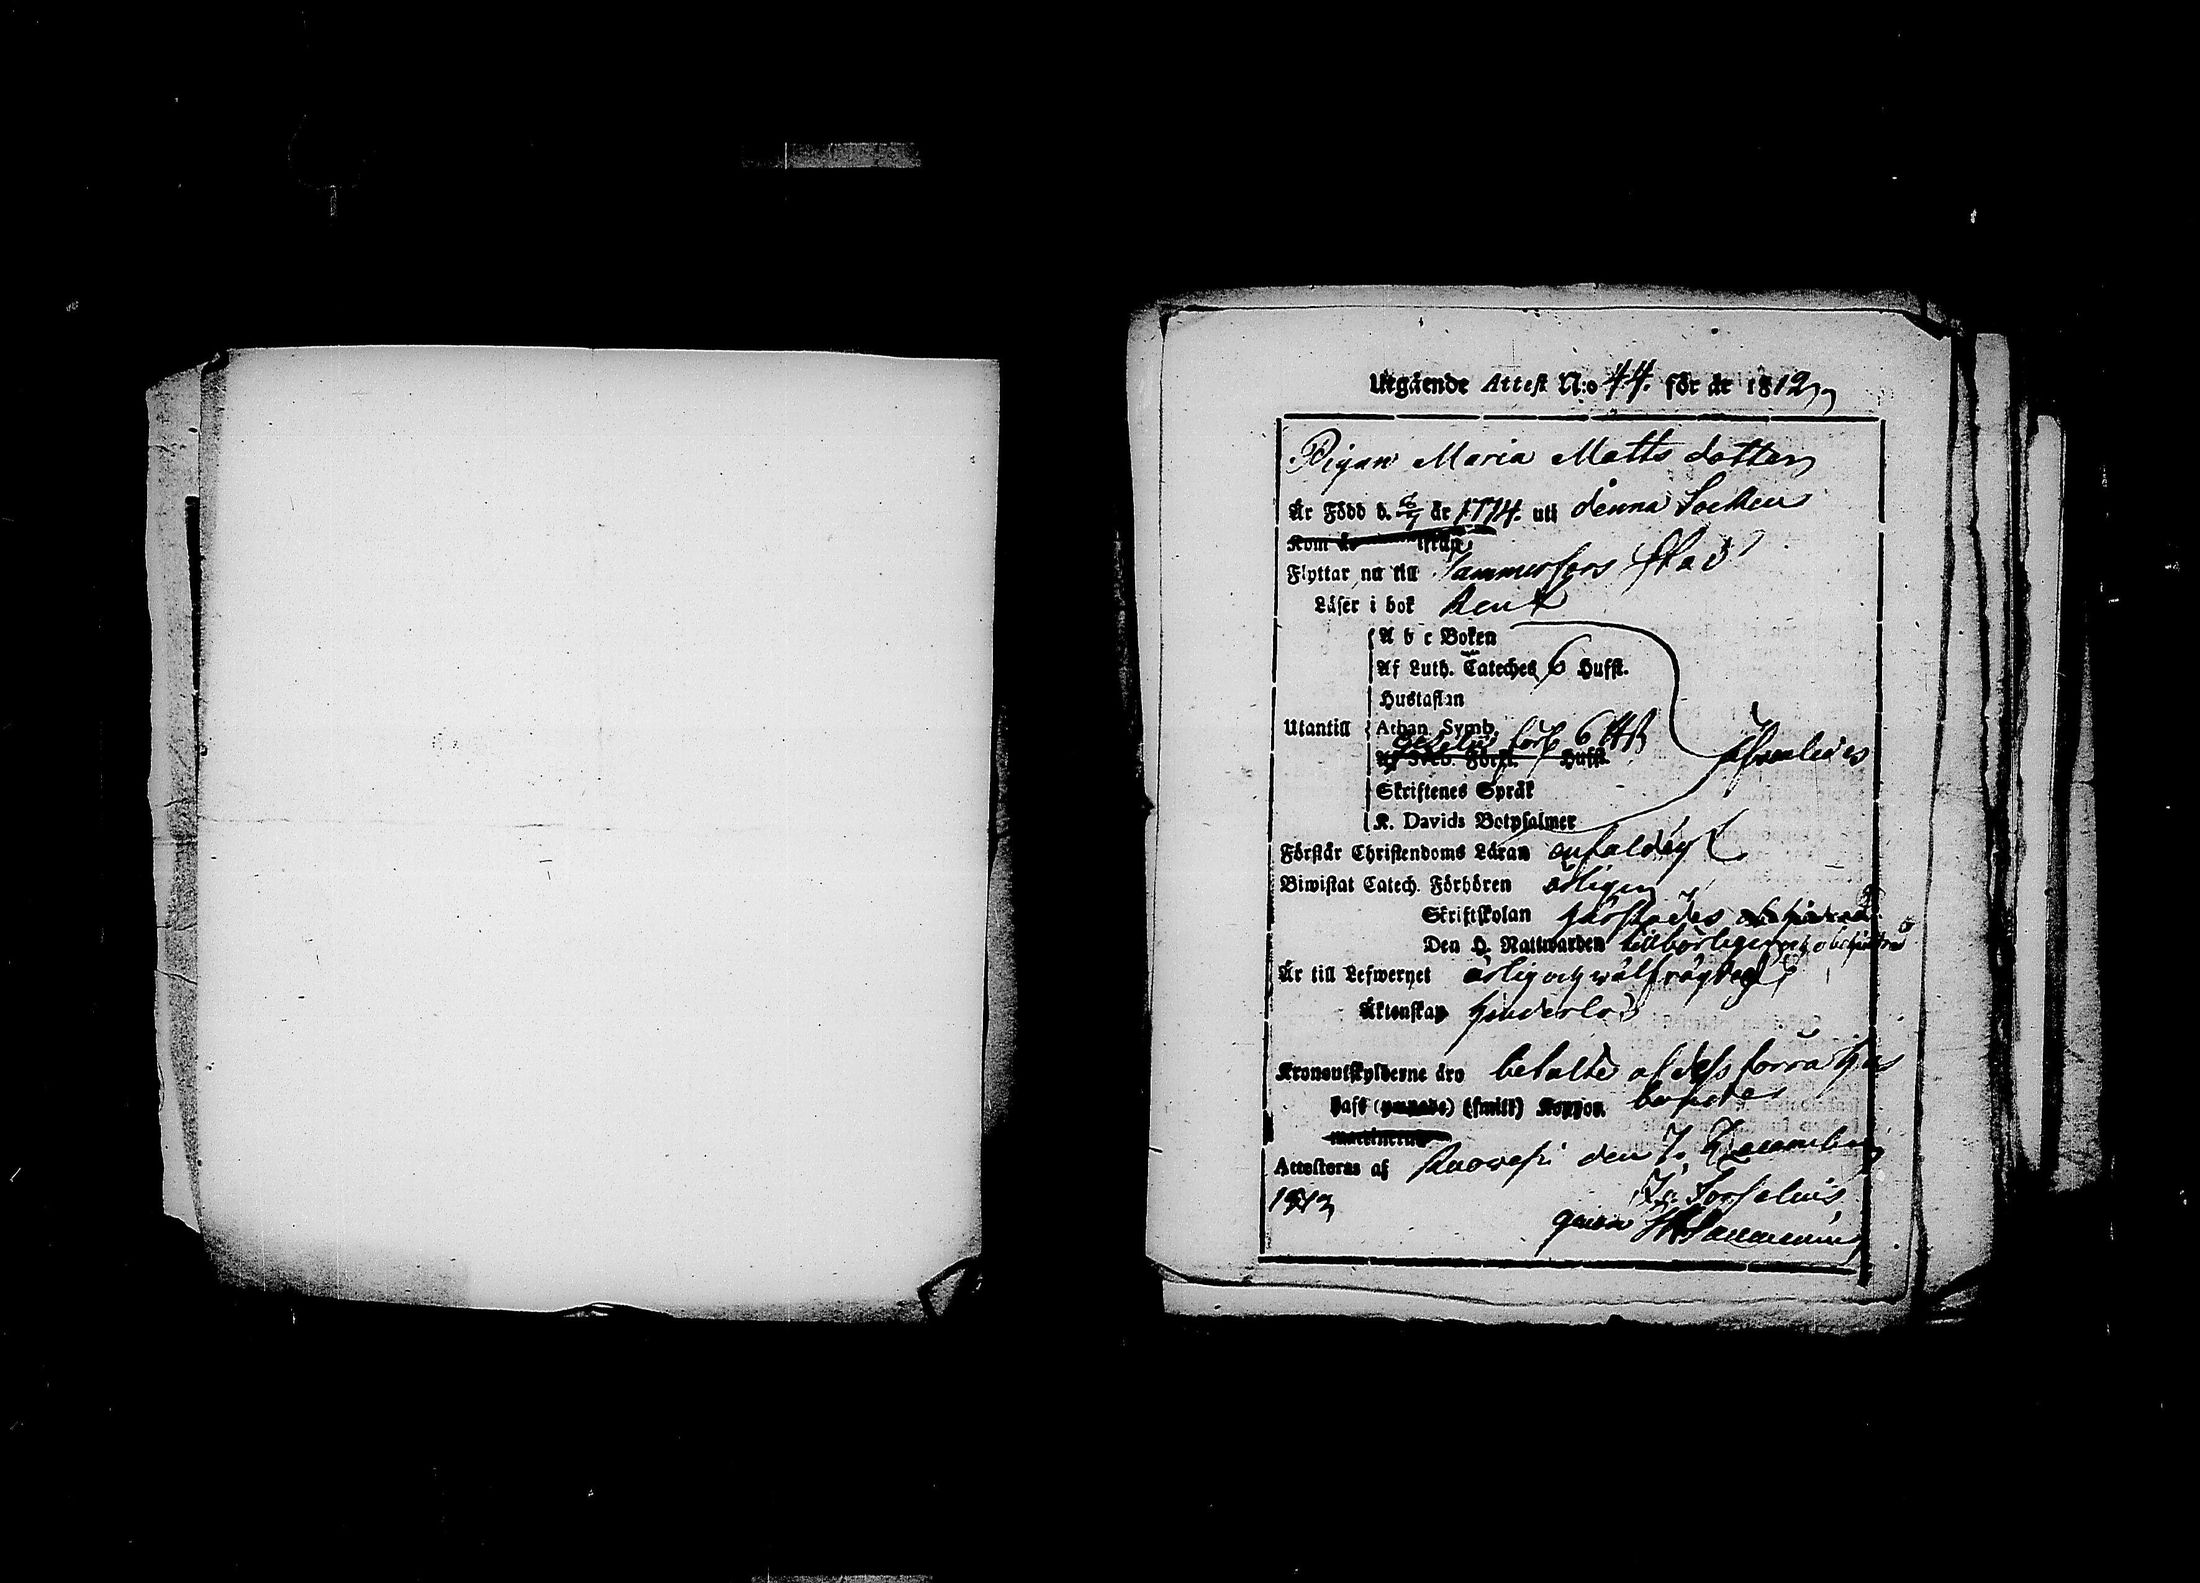 Utgående Attest N:o 44. för år 1812
Pigan Maria Matts dotter
Är Född d. år 1774. uti denna Socken
Kom år
Flyttar nu till Tammerfors stad
Läser i bok Rent
A b c Boken
Af Luth. Cateches 6 Hufst.
Hustaflan
Utantill Athan. Symb.
förk 6
Af Sveb. Förkl. Hufst.
Skriftenes Språk
K. Davids Botpsalmer
Förstår Christendoms Läran enfaldigt
Biwistat Catech. Förhören årligen
Skriftskolan
Den H. Nattwarden
Är till Lefwernet ärlig och wälfrägdad
Äktenskap hinderlös
Kronoutskylderne äro betalte af dess förra
haft (ympade) (smitt) Koppor.
Attesteras af Ruowesi den 7. December
1812
genom